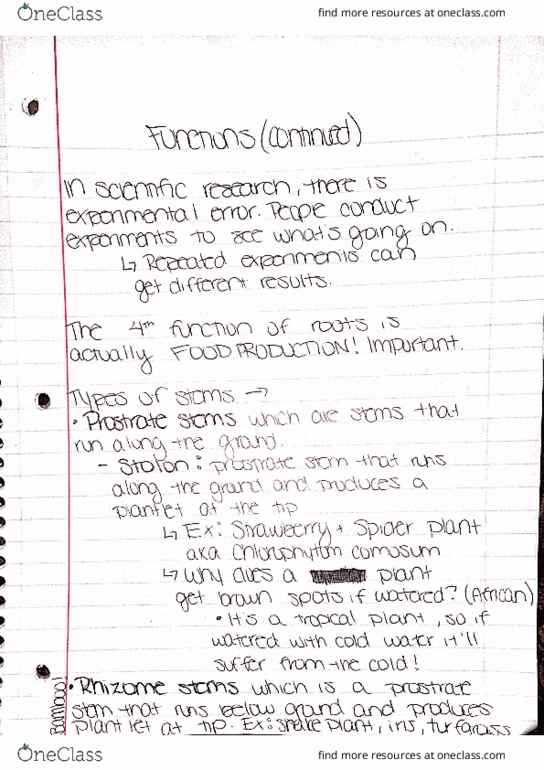 OneClass
find more resources at oneclass.com
Functions (continued)
In scientific research, there is
experimental error. People conduct
experiments to see what's going on.
↳ Repeated experiments can
get different results.
The 4th function of roots is
actually FOOD PRODUCTION! Important.
Types of stems →
• Prostrate stems which are stems that
run along the ground.
- Stolon: prostrate stem that runs
along the ground and produces a
plantlet at the tip
↳ Ex: Strawberry + Spider plant
aka Chlorophytum comosum
↳ Why does a plant
get brown spots if watered? (African)
• It's a tropical plant, so if
watered with cold water it'll
suffer from the cold!
• Rhizome stems which is a prostrate
stem that runs below ground and produces
plantlet at tip. Ex: snake plant, iris, turfgrass
Bamboo!
OneClass
find more resources at oneclass.com